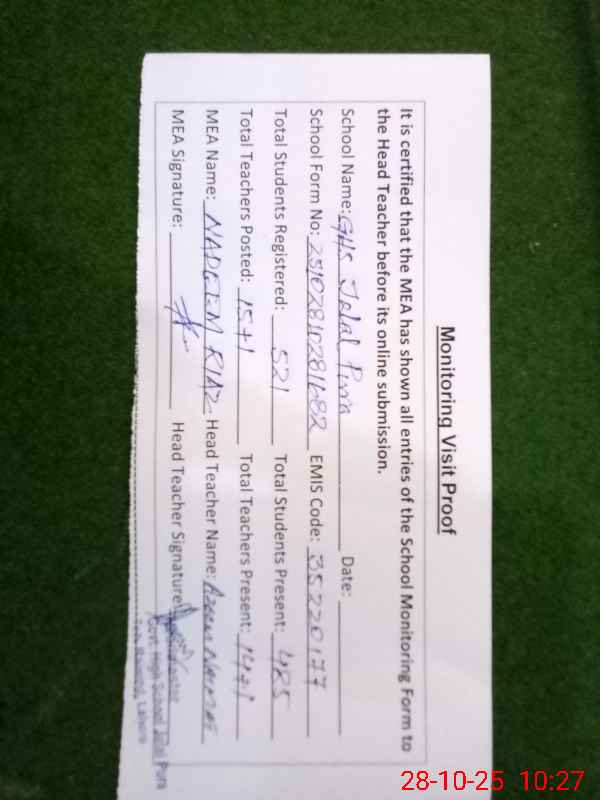 Monitoring Visit Proof
It is certified that the MEA has shown all entries of the School Monitoring Form to
the Head Teacher before its online submission.
School Name: GHS Jalal Pura Date:
School Form No: 25102810281682 EMIS Code: 35220177
Total Students Registered: 521 Total Students Present: 485
Total Teachers Posted: 15+1 Total Teachers Present: 14+1
MEA Name: NADEEM RIAZ Head Teacher Name:
MEA Signature: Head Teacher Signature
Govt. High School Jalal Pura
Lahore
28-10-25 10:27